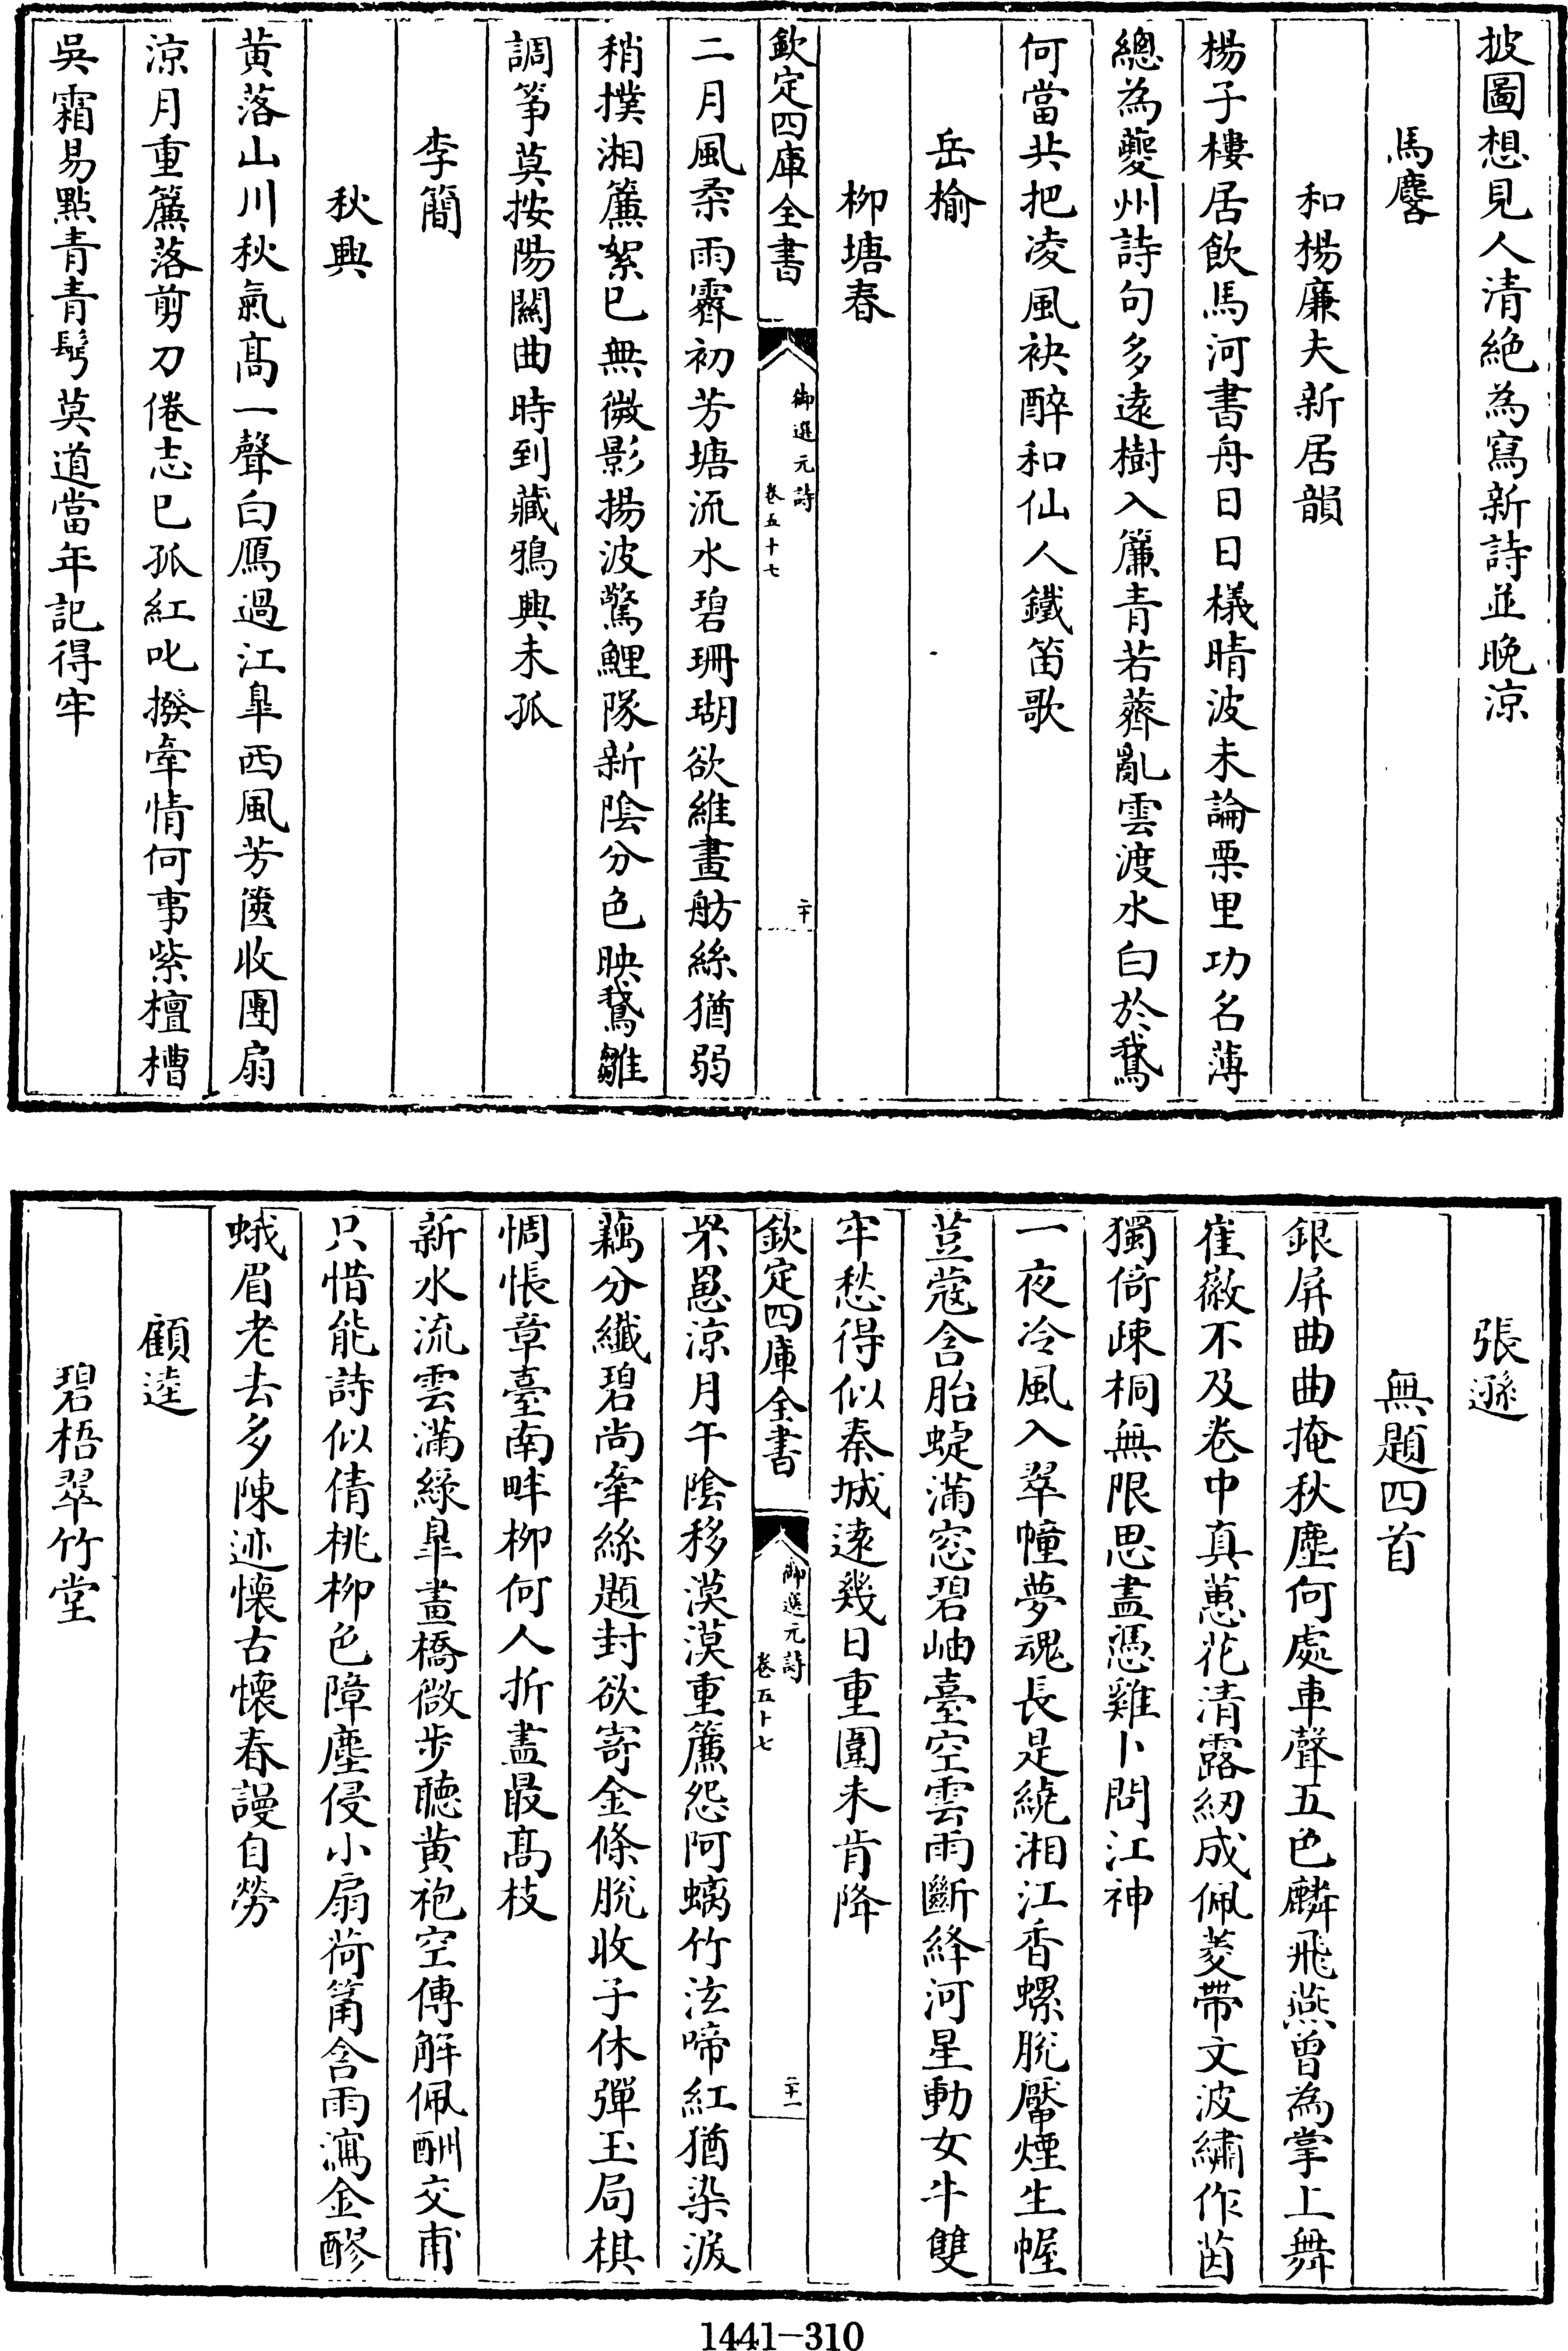 披圖想見人清絶為寫新詩並晚涼
馬麐
和楊廉夫新居韻
楊子樓居飲馬河書舟日日檥晴波未論栗里功名薄
總為夔州詩句多遠樹入簾青若薺亂雲渡水白於鵞
何當共把凌風袂醉和仙人鐵笛歌
岳榆
柳塘春
欽定四庫全書
御選元詩
卷五十七
二十
二月風柔雨霽初芳塘流水碧珊瑚欲維畫舫絲猶弱
稍撲湘簾絮已無微影揚波驚鯉隊新陰分色映鵞雛
調箏莫按陽關曲時到藏鴉興未孤
李簡
秋興
黄落山川秋氣髙一聲白鴈過江臯西風芳篋收團扇
涼月重簾落剪刀倦志已孤紅叱撥牽情何事紫檀槽
吳霜易㸃青青鬢莫道當年記得牢
張遜
無題四首
銀屏曲曲掩秋塵何處車聲五色麟飛燕曾為掌上舞
崔徽不及卷中真蕙花清露紉成佩菱帶文波繡作茵
獨倚疎桐無限思盡憑雞卜問江神
一夜冷風入翠幢夢魂長是繞湘江香螺脫黶煙生幄
荳蔲含胎蜨滿窓碧岫臺空雲雨斷絳河星動女牛雙
牢愁得似秦城遠幾日重圍未肯降
欽定四庫全書
御選元詩
卷五十七
二十一
罘罳涼月午陰移漠漠重簾怨阿螭竹泫啼紅猶染淚
藕分纎碧尚牽絲題封欲寄金條脫收子休彈玉局棋
惆悵章臺南畔柳何人折盡最髙枝
新水流雲滿綠臯畫橋微步聽黄袍空傳解佩酬交甫
只惜能詩似倩桃柳色障塵侵小扇荷筩含雨瀉金醪
蛾眉老去多陳迹懷古懷春謾自勞
顧逵
碧梧翠竹堂
1441-310